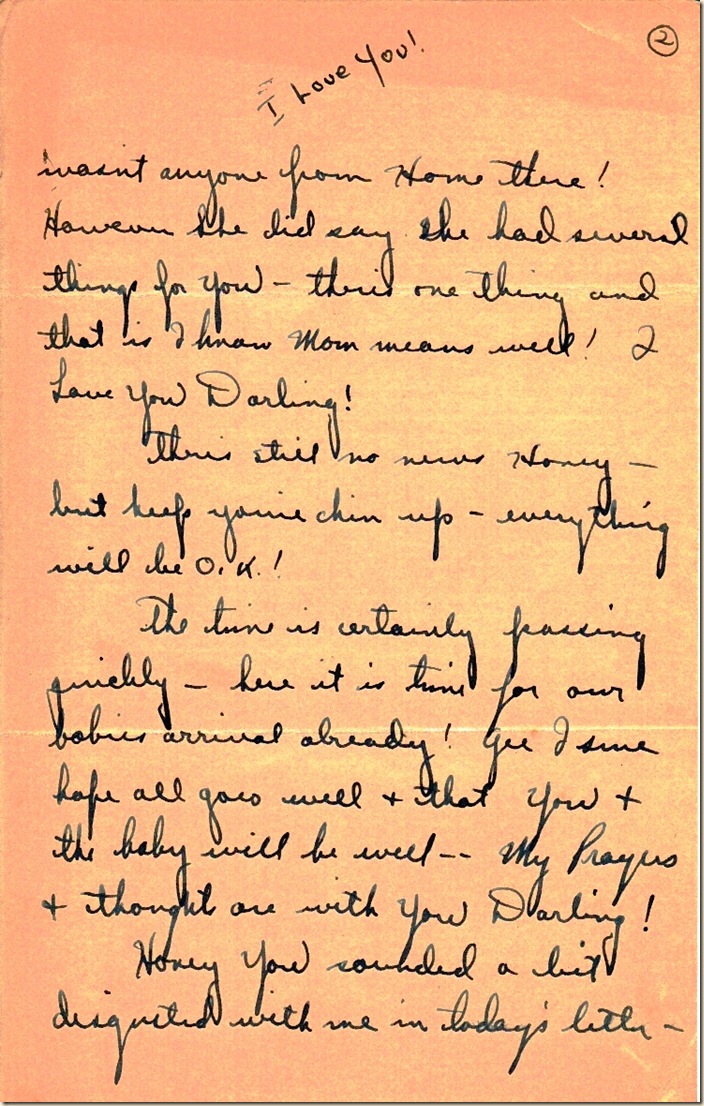 ②
I Love You!
wasn't anyone from Home there!
However she did say she had several
things for you – theris one thing and
that is I know Mom means well! I
Love You Darling!
Theris still no news Honey –
but keep youre chin up – everything
will be O.K.!
The time is certainly passing
quickly – here it is time for our
babies arrival already! Gee I sure
hope all goes well + that You +
the baby will be well -- My Prayers
+ thoughts are with You Darling!
Honey You sounded a bit
disgusted with me in today's letter –